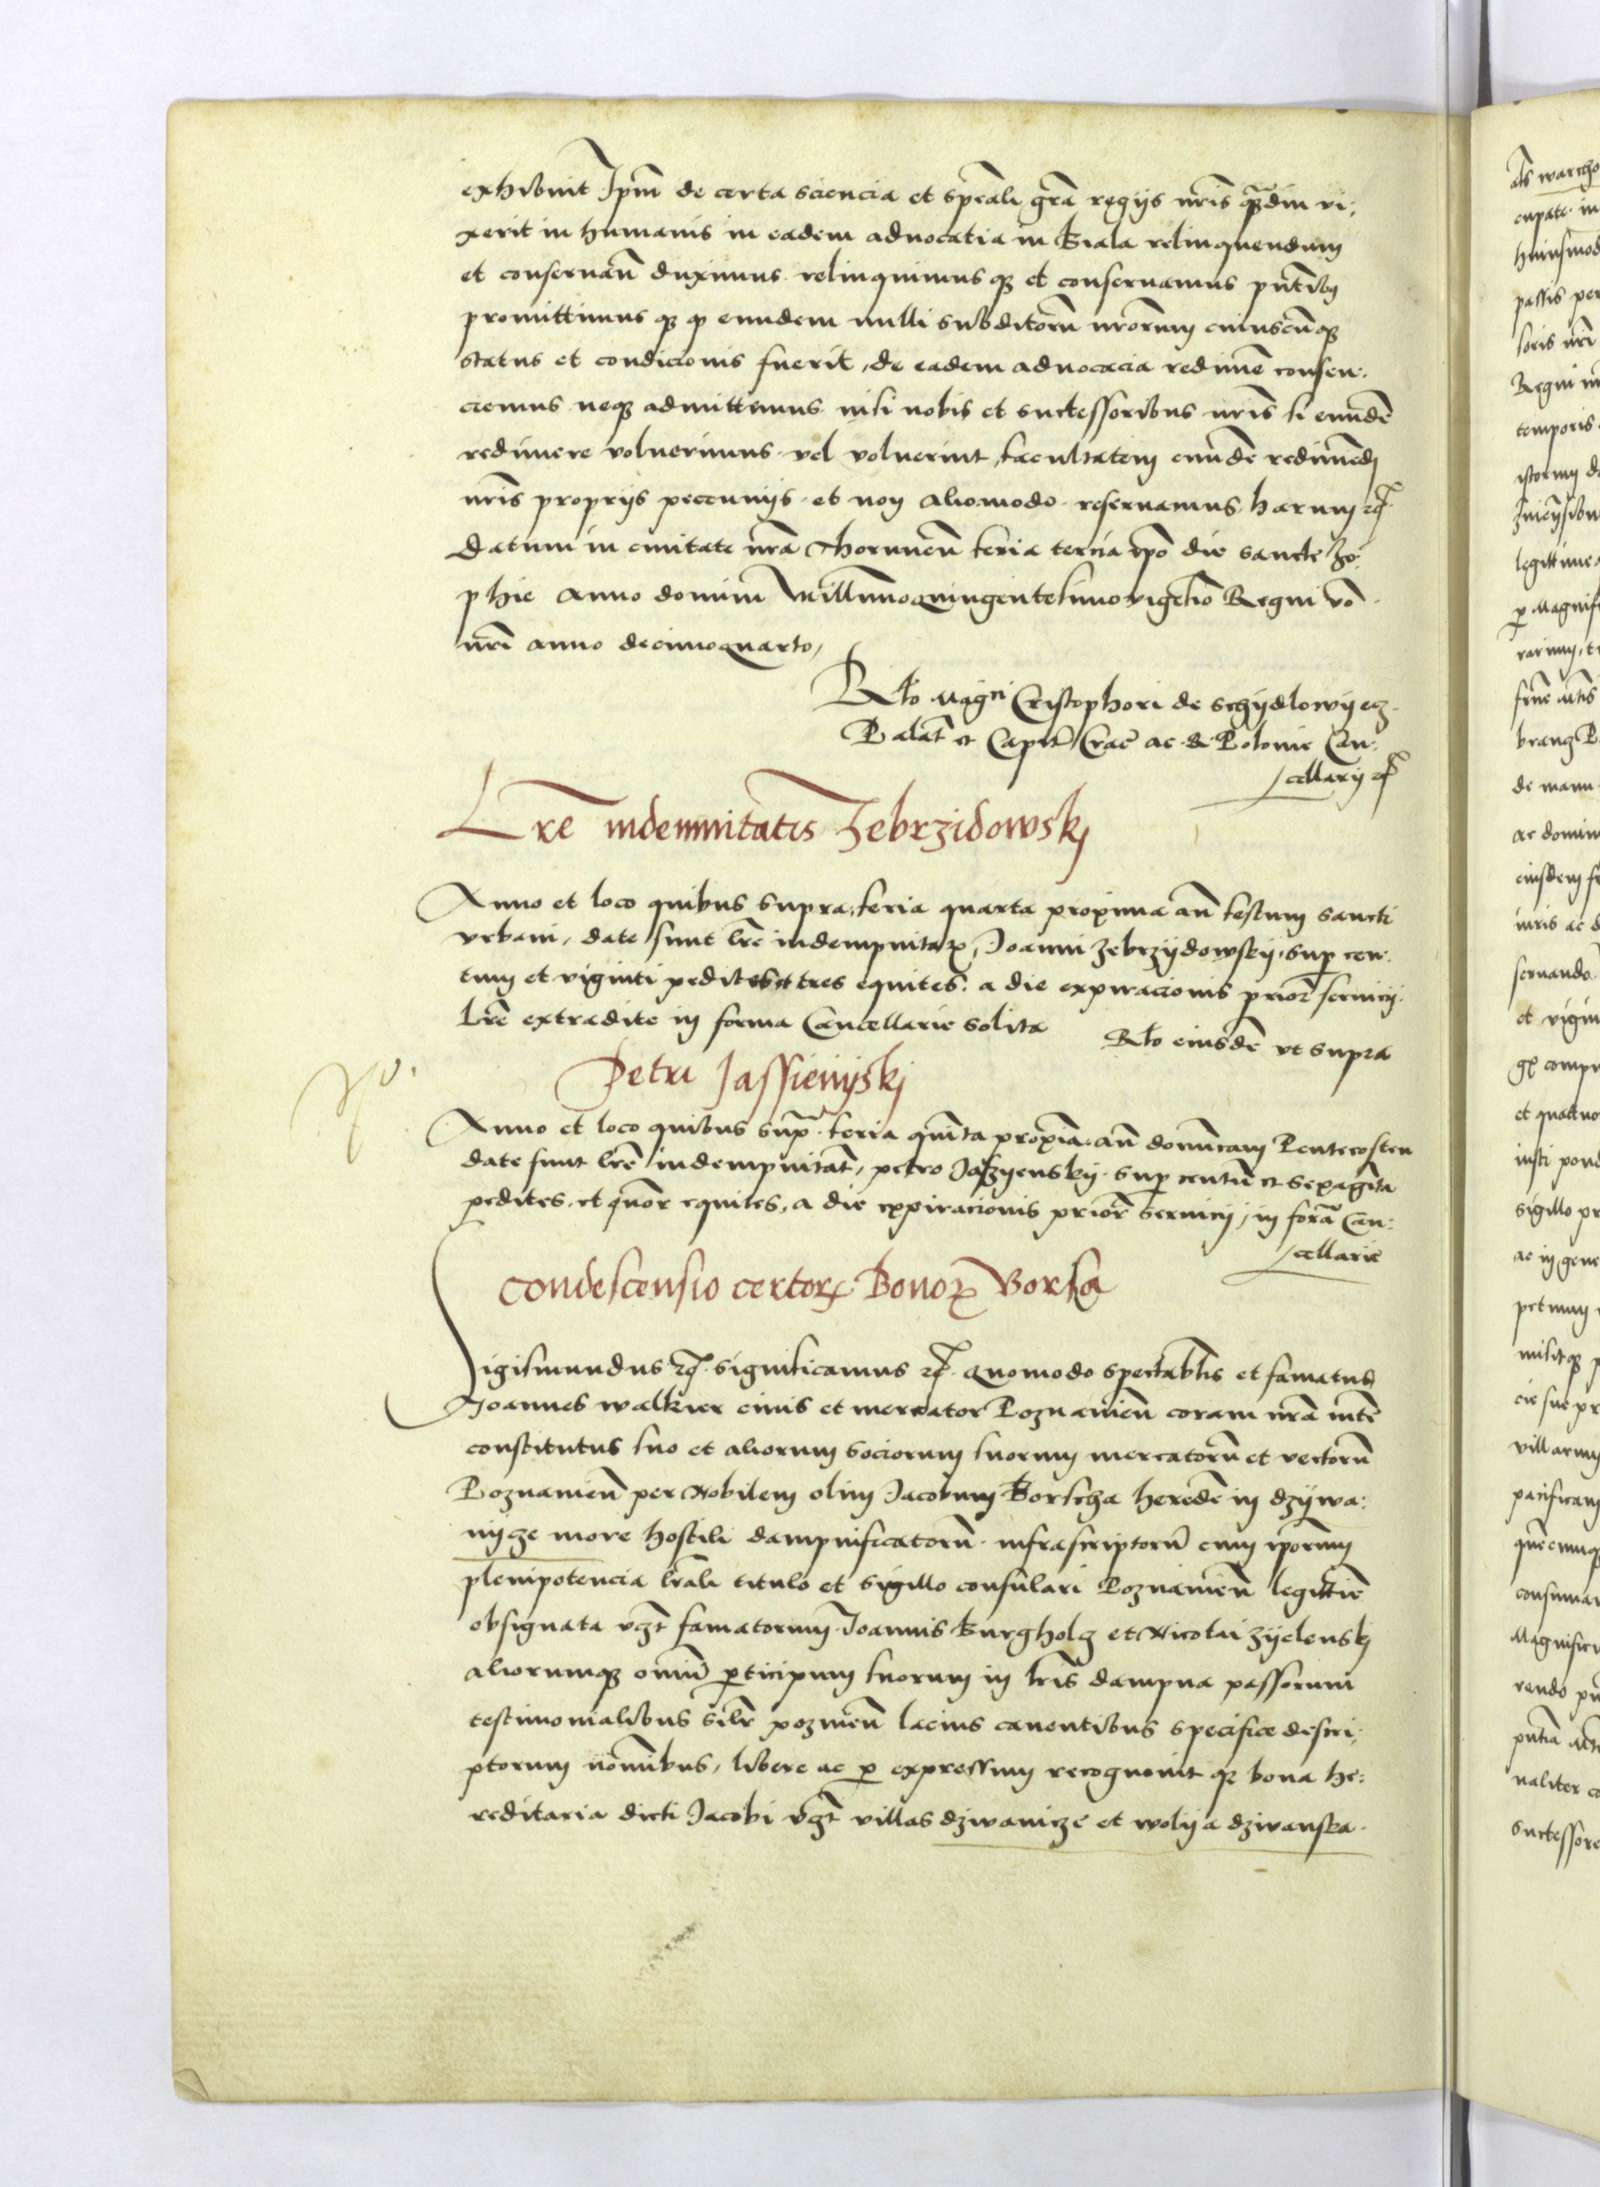 exhibuit Ipm̄ de certa sciencia et spēali grā regijs nrīs qᷓdiu vi:
xerit in humanis in eadem aduocatia in Biala relinquendum
et conseruan̄ duximus relinquimus qꝫ et conseruamus pn̄tibus
promittimus qꝫ ꝙ eundem nulli subditorū nrōrum cuiuscūqꝫ
status et condicionis fuerit, de eadem aduocacia redimē consen:
ciemus neqꝫ admittemus nisi nobis et successoribus nrīs si eundē
redimere voluerimus vel voluerint, facultatem eundē redimēdi
nrīs proprijs peccunijs et non aliomodo reseruamus harum etc.
Datum in ciuitate nrā Thorunen̄ feria tercia ipō die sancte Zo:
phie Anno domini Millimoquingentesimovigesīo Regni vō
nrī anno decimoquarto,
Rlo Magci Cristophori de Schydlowyecz
Palat̄ et Capit̄ Crac̄ ac R Polonie Can:
cellarij etc
Lrē indemnitatis Zebrzidowskj
Anno et loco quibus supra, feria quarta proxima an̄ festum sancti
vrbani, date sunt lrē indempnitaꝝ, Joanni Zebrzydowsky, sup cen:
tum et viginti pedites et tres equites. a die expiracionis prioꝝ seruicij.
Lrē extradite in forma Cancellarie solita
Rlo eiusdē vt supra
Petri Jassienijskj
Anno et loco quibus sup̄ feria quīta proxīa an̄ domīcam Pentecosten
date sunt lrē indempnitat̄, petro Jaszyensky sup centū et sexagīta
pedites et quōr equites, a die expiracionis priorē seruicij, in formā Can:
cellarie
Condescensio certoꝝ Bonoꝝ Borsa
Sigismundus etc. significamus etc. Quomodo spectabīlis et famatus
Joannes walkier ciuis et mercator Poznanien̄ coram nrā intē
constitutus suo et aliorum sociorum suorum mercatorū et vectorū
Poznanien̄ per Nobilem olim Jacobum Borscha heredē in dzywa:
nycze more hostili dampnificatorū infrascriptorū cum ipōrum
plenipotencia lrāli titulo et sigillo consulari Poznanien̄ legittīe
obsignata vꝫt famatorum Joannis Burgholcz et Nicolai zyelenskj
aliorumqꝫ omīū ꝑticipum suorum in lrīs dampna passorum
testimonialibus silr̄ poznien̄ lacius canentibus specifice descri:
ptorum nomībus, libere ac ꝑ expressum recognouit qꝫ bona he:
reditaria dicti Jacobi vꝫt villas dziwanicze et wolya dziwanska